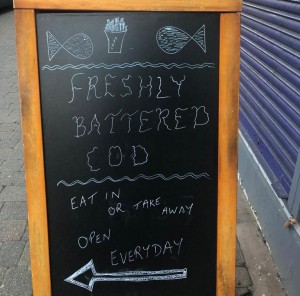 FRESHLY
BATTERED
COD
EAT IN
OR TAKE AWAY
OPEN
EVERYDAY